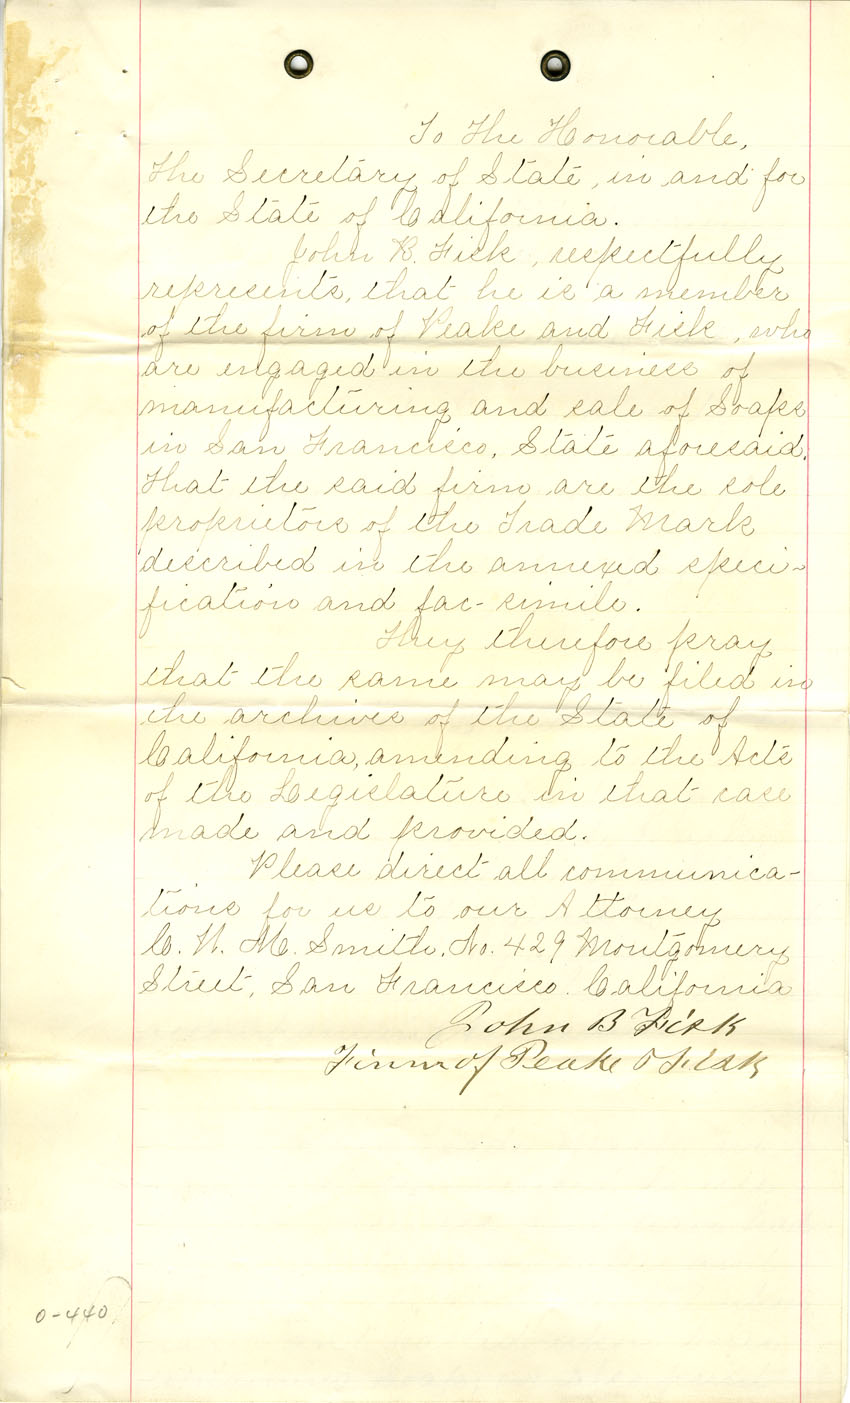 To the Honorable,
the Secretary of State, in and for
the State of California.
John B. Fisk, respectfully
represents, that he is a member
of the firm of Peake and Fisk, who
are engaged in the business of
manufacturing and sale of Soaps
in San Francisco, State aforesaid.
That the said firm are the sole
proprietors of the Trade Mark
described in the annexed speci-
fication and fac-simile.
They therefore pray
that the same may be filed in
the archives of the State of
California, amending to the Acts
of the Legislature in that case
made and provided.
Please direct all communica-
tions for us to our Attorney
C. W. M. Smith, No. 429 Montgomery
Street, San Francisco. California
John B Fisk
Firm of Peake & Fisk
0-440